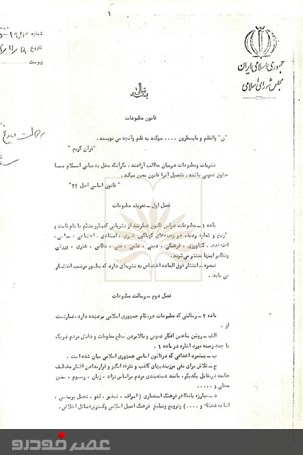 جمهوری اسلامی ایران
مجلس شورای اسلامی
شماره
تاریخ
پیوست
قانون مطبوعات
"ن" والقلم و مایسطرون .... سوگند به قلم وآنچه می نویسند.
"قرآن کریم"
نشریات ومطبوعات دربیان مطالب آزادند، مگرآنکه مخل به مبانی اسلام یا
حقوق عمومی باشند. تفصیل آنرا قانون معین میکند.
"قانون اساسی اصل ۲۴"
فصل اول - تعریف مطبوعات
ماده ۱ - مطبوعات دراین قانون عبارتند از نشریاتی که بطور منظم با نام ثابت و
تاریخ و شماره ردیف در زمینه‌های گوناگون خبری ، انتقادی ، اجتماعی ، سیاسی،
اقتصادی، کشاورزی ، فرهنگی ، دینی ، علمی ، فنی ، نظامی ، هنری ، ورزشی
ونظایر اینها منتشر می‌شوند.
تبصره - انتشار فوق العاده اختصاص به نشریه‌ای دارد که بطور مرتب انتشار
می یابد.
فصل دوم - رسالت مطبوعات
ماده ۲ - رسالتی که مطبوعات درنظام جمهوری اسلامی بعهده دارد، عبارتست
از
الف - روشن ساختن افکار عمومی و بالابردن سطح معلومات و دانش مردم دریک
یا چند زمینه مورد اشاره در ماده ۱.
ب - پیشبرد اهدافی که درقانون اساسی جمهوری اسلامی بیان شده است .
ج - تلاش برای نفی مرزبندیهای کاذب و تفرقه انگیز و قرارندادن اقشار مختلف
جامعه درمقابل یکدیگر، مانند دسته‌بندی مردم براساس نژاد، زبان ، رسوم ، سنن
محلی و .....
د - مبارزه بامظاهر فرهنگ استعماری ( اسراف ، تبذیر ، لغو ، تجمل پرستی ،
اشاعه فحشاء و ....) وترویج وتبلیغ فرهنگ اصیل اسلامی وگسترش فضائل اخلاقی.
عصر خودرو